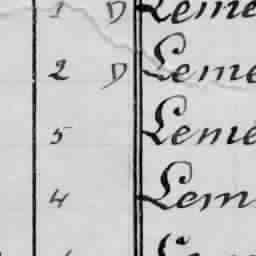 1 D Leme
2 D Leme
5 Leme
4 Lem